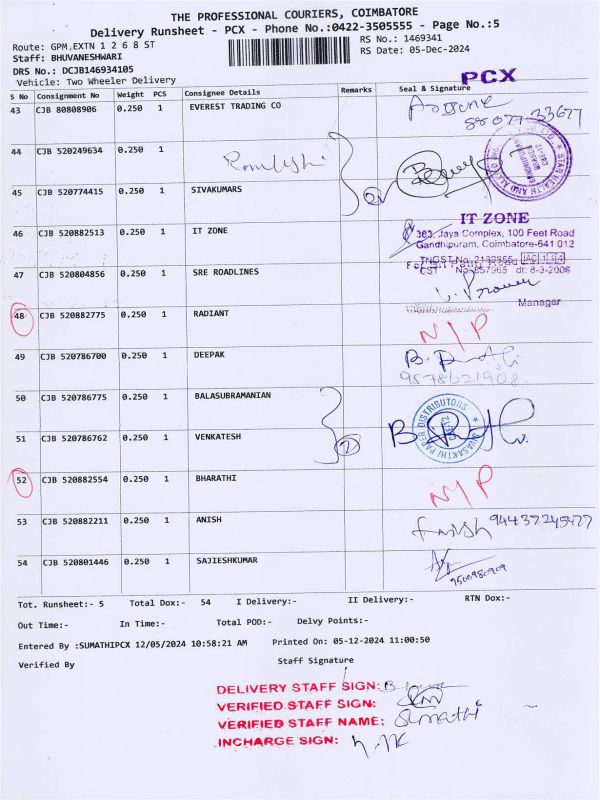 THE PROFESSIONAL COURIERS, COIMBATORE
Delivery Runsheet - PCX - Phone No.:0422-3505555 - Page No.:5
Route: GPM,EXTN 1 2 6 8 ST
RS No.: 1469341
Staff: BHUVANESHWARI
RS Date: 05-Dec-2024
DRS No.: DCJB146934105
Vehicle: Two Wheeler Delivery
PCX
S No Consignment No Weight PCS Consignee Details Remarks Seal & Signature
43 CJB 80808906 0.250 1 EVEREST TRADING CO
44 CJB 520249634 0.250 1
45 CJB 520774415 0.250 1 SIVAKUMARS
46 CJB 520882513 0.250 1 IT ZONE
IT ZONE
383, Jaya Complex, 100 Feet Road
Gandhipuram, Coimbatore-641 012
47 CJB 520804856 0.250 1 SRE ROADLINES
Manager
48 CJB 520882775 0.250 1 RADIANT N/P
49 CJB 520786700 0.250 1 DEEPAK
50 CJB 520786775 0.250 1 BALASUBRAMANIAN
51 CJB 520786762 0.250 1 VENKATESH 2
52 CJB 520882554 0.250 1 BHARATHI N/P
53 CJB 520882211 0.250 1 ANISH
54 CJB 520801446 0.250 1 SAJIESHKUMAR
9500980909
Tot. Runsheet:- 5 Total Dox:- 54 I Delivery:- II Delivery:- RTN Dox:-
Out Time:- In Time:- Total POD:- Delvy Points:-
Entered By :SUMATHIPCX 12/05/2024 10:58:21 AM Printed On: 05-12-2024 11:00:50
Verified By Staff Signature
DELIVERY STAFF SIGN:
VERIFIED STAFF SIGN:
VERIFIED STAFF NAME: Sumathi
INCHARGE SIGN: